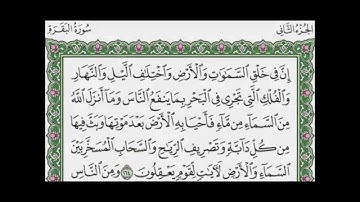 الجزء الثاني
سورة البقرة
إِنَّ فِي خَلْقِ السَّمَٰوَٰتِ وَالْأَرْضِ وَاخْتِلَٰفِ الَّيْلِ وَالنَّهَارِ
وَالْفُلْكِ الَّتِي تَجْرِي فِي الْبَحْرِ بِمَا يَنفَعُ النَّاسَ وَمَا أَنزَلَ اللَّهُ
مِنَ السَّمَاءِ مِن مَّاءٍ فَأَحْيَا بِهِ الْأَرْضَ بَعْدَ مَوْتِهَا وَبَثَّ فِيهَا
مِن كُلِّ دَابَّةٍ وَتَصْرِيفِ الرِّيَٰحِ وَالسَّحَابِ الْمُسَخَّرِ بَيْنَ
السَّمَاءِ وَالْأَرْضِ لَءَايَٰتٍ لِّقَوْمٍ يَعْقِلُونَ ١٦٤ وَمِنَ النَّاسِ